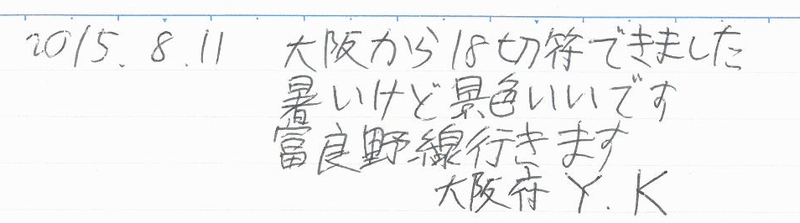 2015.8.11 大阪から18切符できました
暑いけど景色いいです
富良野線行きます
大阪府 Y.K